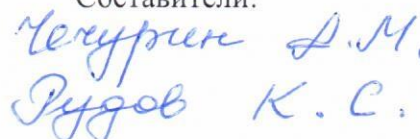 Составители:
Чечурин А.М.
Рудов К. С.